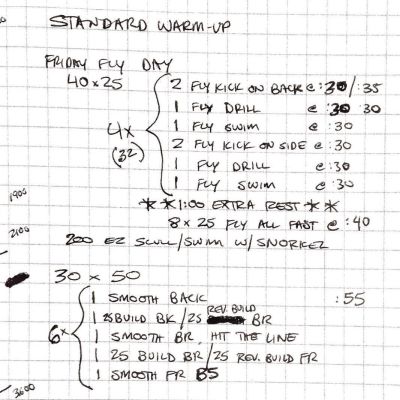 STANDARD WARM-UP
FRIDAY FLY DAY
40x25
4x
(32)
2 FLY KICK ON BACK @ :30/:35
1 FLY DRILL @ :30 :30
1 FLY SWIM @ :30
2 FLY KICK ON SIDE @ :30
1 FLY DRILL @ :30
1 FLY SWIM @ :30
**1:00 EXTRA REST**
8x25 FLY ALL FAST @ :40
1900
2100
200 EZ SCULL/SWIM W/SNORKEL
30 x 50
6x
1 SMOOTH BACK :55
1 25 BUILD BK/25 REV. BUILD BR
1 SMOOTH BR, HIT THE LINE
1 25 BUILD BR/25 REV. BUILD FR
1 SMOOTH FR B5
3600